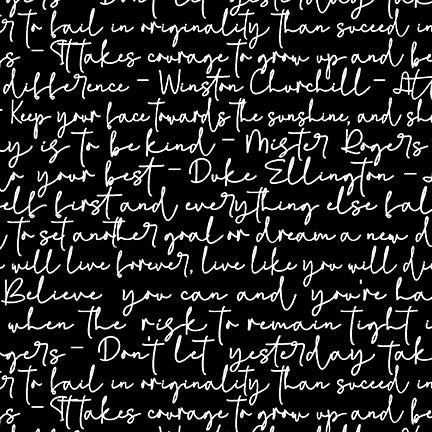 Don't let yesterday
r to fail in originality than suceed in
s - It takes courage to grow up and be
difference - Winston Churchill - Att
Keep your face towards the sunshine, and sh
y is to be kind - Mister Rogers
o your best - Duke Ellington -
elf first and everything else fal
to set another goal or dream a new d
will live forever, live like you will di
Believe you can and you're ha
when the risk to remain tight i
gers - Don't let yesterday tak
r to fail in originality than suceed in
s - It takes courage to grow up and be
difference - Winston Churchill